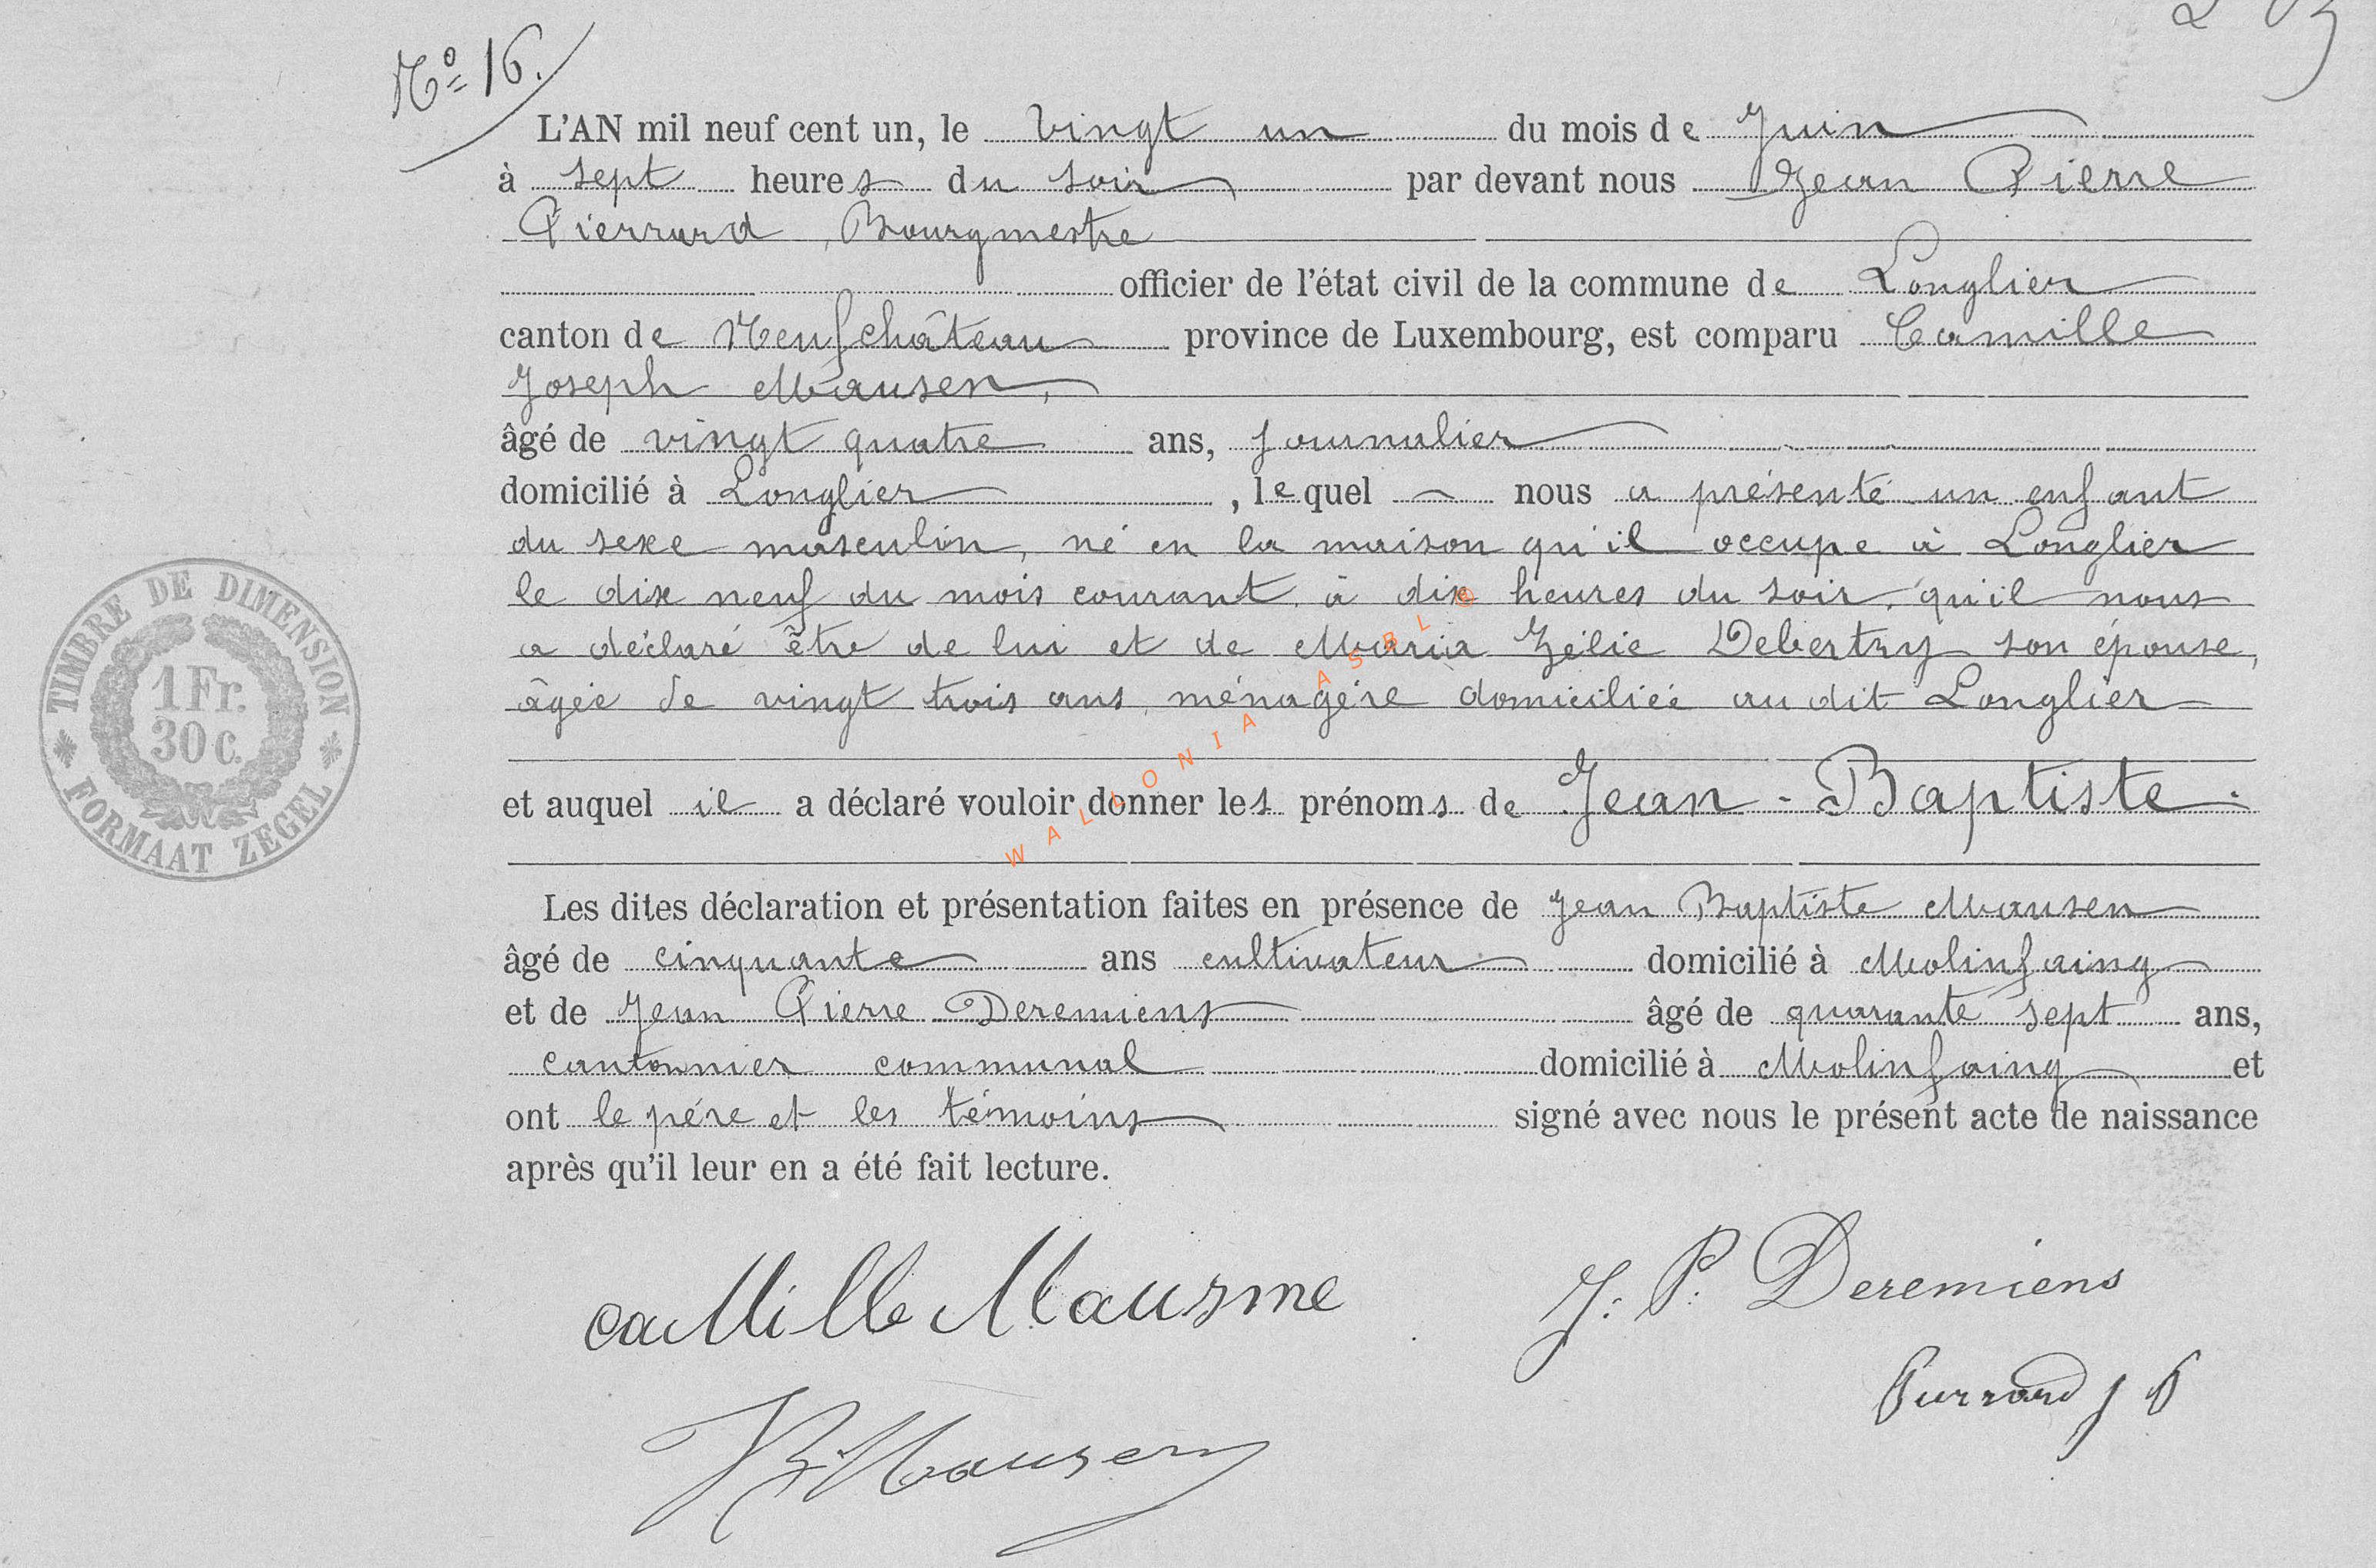 Nº 16.
L'AN mil neuf cent un, le vingt un du mois de Juin
à sept heures du soir par devant nous Jean Pierre
Pierrard, Bourgmestre
officier de l'état civil de la commune de Longlier
canton de Neufchâteau province de Luxembourg, est comparu Camille
Joseph Mausen,
âgé de vingt quatre ans, journalier
domicilié à Longlier, lequel nous a présenté un enfant
du sexe masculin, né en la maison qu'il occupe à Longlier
le dix neuf du mois courant à dix heures du soir, qu'il nous
a déclaré être de lui et de Maria Zélie Debertry son épouse,
âgée de vingt trois ans, ménagère domiciliée au dit Longlier
et auquel il a déclaré vouloir donner les prénoms de Jean-Baptiste.
Les dites déclaration et présentation faites en présence de Jean Baptiste Mausen
âgé de cinquante ans cultivateur domicilié à Molinfaing
et de Jean Pierre Deremiens âgé de quarante sept ans,
cantonnier communal domicilié à Molinfaing et
ont le père et les témoins signé avec nous le présent acte de naissance
après qu'il leur en a été fait lecture.
caMille Mausme
J. P. Deremiens
JB Mausen
TIMBRE DE DIMENSION
1 Fr.
30 c.
FORMAAT ZEGEL
WALLONIA ASBL ©